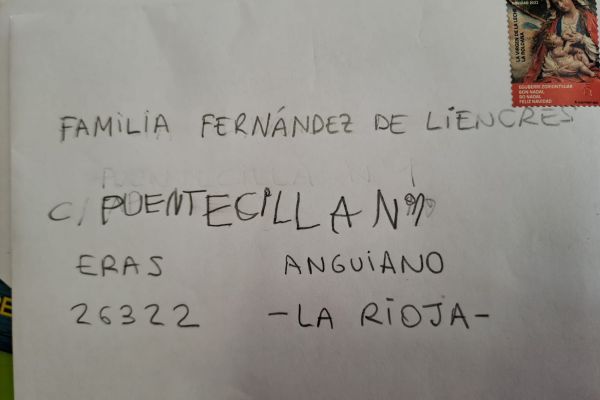 NAVIDAD 2022
LA VIRGEN DE LA LECHE
LA ROLDANA
EGUBERRI ZORIONTSUAK
BON NADAL
BO NADAL
FELIZ NAVIDAD
FAMILIA FERNÁNDEZ DE LIENCRES
C/ PUENTECILLA Nº
ERAS ANGUIANO
26322 -LA RIOJA-